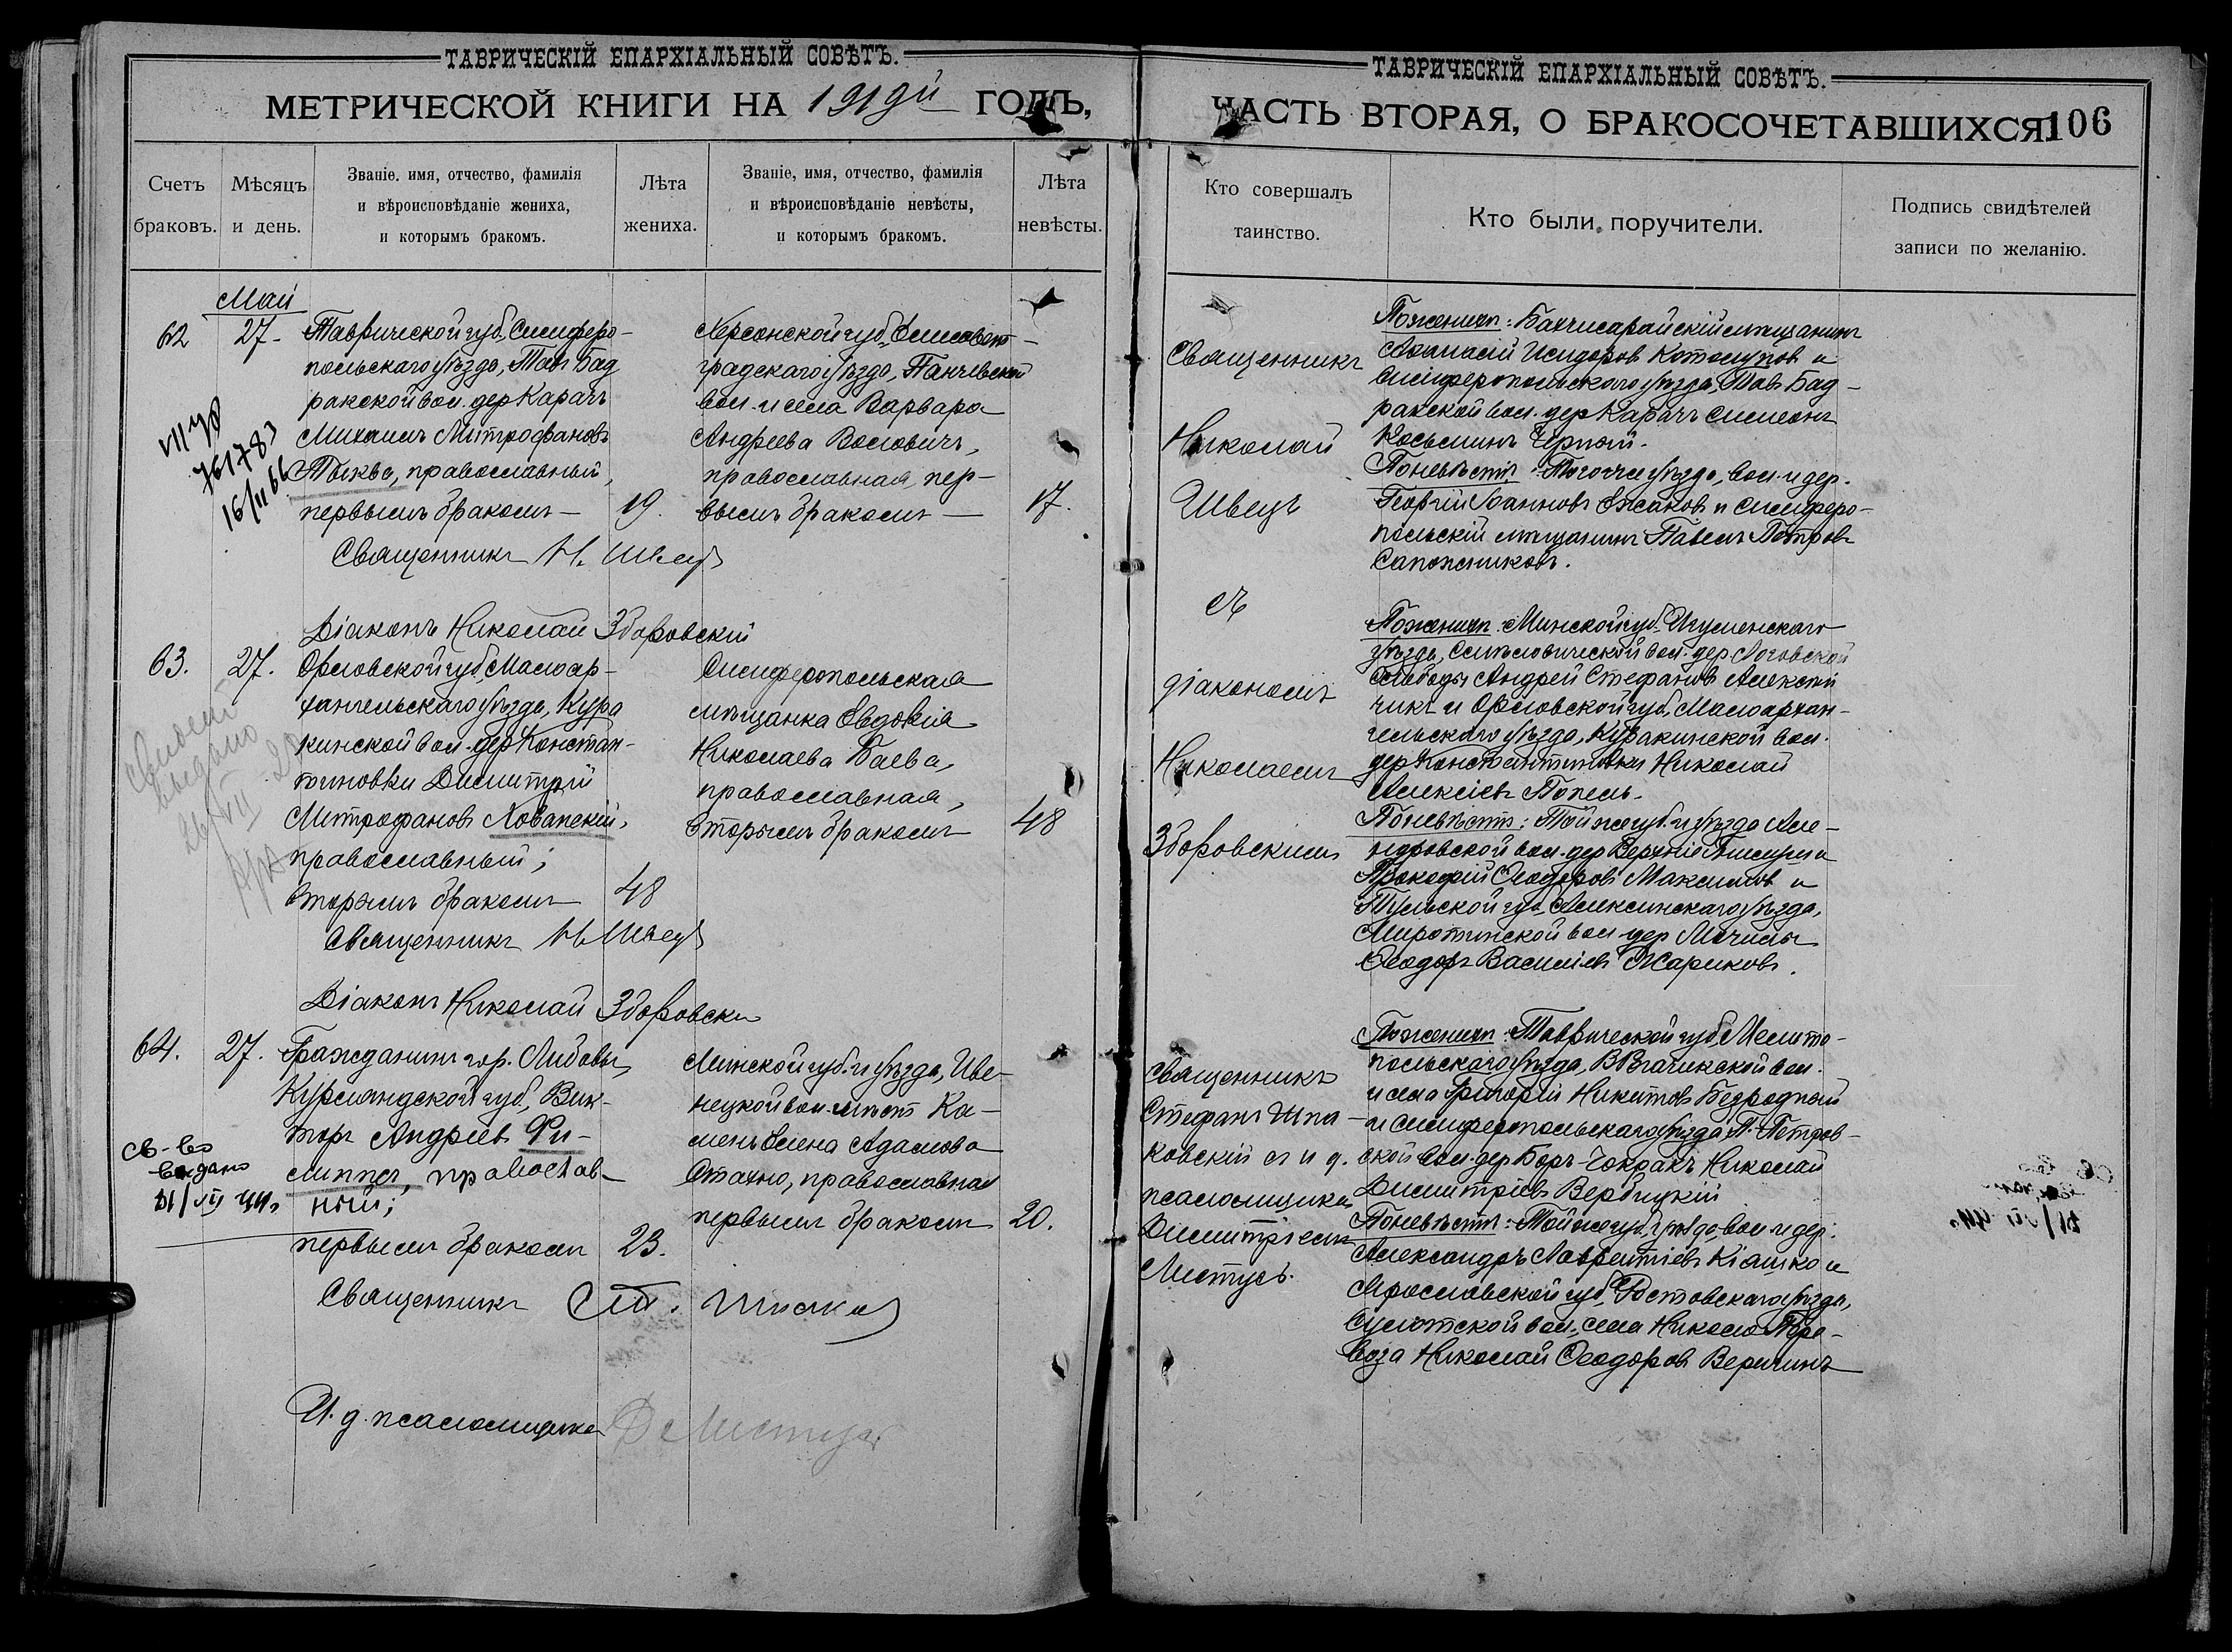 ТАВРИЧЕСКІЙ ЕПАРХІАЛЬНЫЙ СОВѢТЪ.
МЕТРИЧЕСКОЙ КНИГИ НА 1919й ГОДЪ,
Счетъ браковъ.
Мѣсяцъ и день.
Званіе, имя, отчество, фамилія
и вѣроисповѣданіе жениха,
и которымъ бракомъ.
Лѣта жениха.
Званіе, имя, отчество, фамилія
и вѣроисповѣданіе невѣсты,
и которымъ бракомъ.
Лѣта невѣсты.
Май
62
27.
Таврической губ., Симферо-
польскаго уѣзда, Тав. Бад
ракской вол. дер. Карачъ
Михаилъ Митрофановъ
Тыква, православный,
первымъ бракомъ —
19.
Херсонской губ., Елисавет-
градскаго уѣзда, Панчевской
вол. и села Варвара
Андреева Волович,
православная, пер-
вымъ бракомъ —
17.
761783
16/II 66
Священникъ Н. Швецъ
Діаконъ Николай Зборовскій
63.
27.
Орловской губ., Малоар-
хангельскаго уѣзда, Кура
кинской вол. дер. Констан-
тиновки Димитрій
Митрофановъ Хованскій,
православный;
вторымъ бракомъ
48
Симферопольская
мѣщанка Евдокія
Николаева Баева,
православная,
вторымъ бракомъ
48
выдано
26/VII
Священникъ Н. Швецъ
Діаконъ Николай Зборовскій
64.
27.
Гражданинъ гор. Либавы,
Курляндской губ., Вик-
торъ Андреевъ Фи-
липпъ, православ-
ный;
первымъ бракомъ
23.
Минской губ. и уѣзда, Иве-
нецкой вол. мѣст. Ка-
мень Елена Адамова
Стахно, православная
первымъ бракомъ
20.
св-во
выдано
Священникъ Ст. Шпак
И. д. псаломщика Д. Листусъ
ТАВРИЧЕСКІЙ ЕПАРХІАЛЬНЫЙ СОВѢТЪ.
ЧАСТЬ ВТОРАЯ, О БРАКОСОЧЕТАВШИХСЯ
106
Кто совершалъ таинство.
Кто были поручители.
Подпись свидѣтелей
записи по желанію.
Священникъ
Николай
Швецъ
съ
діакономъ
Николаемъ
Зборовскимъ
По женихѣ: Бахчисарайскій мѣщанинъ
Аѳанасій Исидоровъ Котолупов и
Симферопольскаго уѣзда, Тав. Бад-
ракской вол. дер. Карачъ Симеонъ
Косьминъ Черный.
По невѣстѣ: Того же уѣзда, вол. и дер.
Георгій Іоанновъ Ежаковъ и Симферо-
польскій мѣщанинъ Павелъ Петровъ
Сапожниковъ.
По женихѣ: Минской губ. Игуменскаго
уѣзда, вол. дер.
слободы Андрей Стефановъ Алексѣй
чикъ и Орловской губ., Малоархан-
гельскаго уѣзда, Куракинской вол.
дер. Константиновки Николай
Алексіевъ Попель.
По невѣстѣ: Той же губ. и уѣзда Але-
ндровской вол. дер. Верхніе
Прокофій Ѳеодоровъ Максимов и
Тульской губ. Алексинскаго уѣзда,
Миротинской вол. дер.
Ѳеодоръ Василіевъ Жариковъ.
священникъ
Стефанъ Шпа-
ковскій съ и. д.
псаломщика
Димитріемъ
Листусъ.
По женихѣ: Таврической губ., Мелито-
польскаго уѣзда, В. Рогачикской вол.
и села Григорій Никитовъ Безродный
и Симферопольскаго уѣзда П. Петров-
ской вол. дер. Боръ-Чокракъ Николай
Димитріевъ Вербицкій
По невѣстѣ: Той же губ., уѣзда, вол. и дер.
Александръ Лаврентіевъ Кіашко и
Ярославской губ., Ростовскаго уѣзда,
Сулотской вол., села Николо-Пере-
воза Николай Ѳеодоровъ Веричинъ